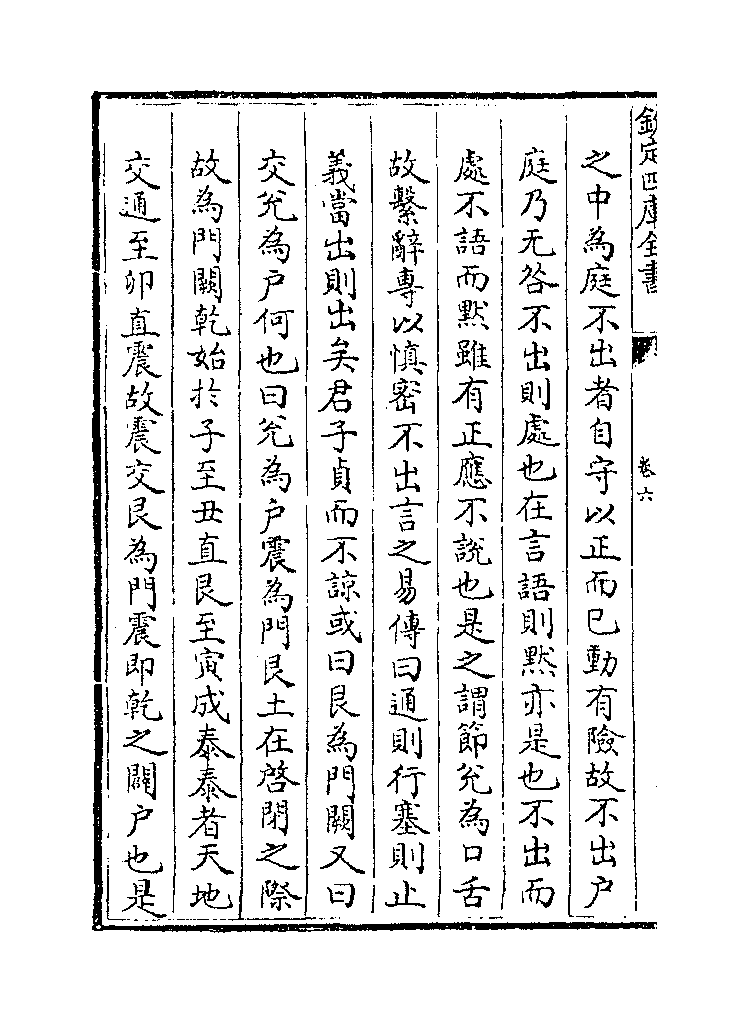 欽定四庫全書
卷六
之中為庭不出者自守以正而已動有險故不出户
庭乃无咎不出則處也在言語則黙亦是也不出而
處不語而黙雖有正應不説也是之謂節兊為口舌
故繫辭專以慎密不出言之易傳曰通則行塞則止
義當出則出矣君子貞而不諒或曰艮為門闕又曰
交兊為户何也曰兊為户震為門艮土在啓閉之際
故為門闕乾始於子至丑直艮至寅成泰泰者天地
交通至卯直震故震交艮為門震即乾之闢户也是